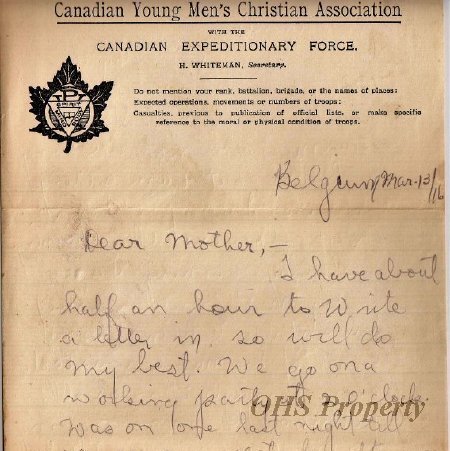 Canadian Young Men's Christian Association
WITH THE
CANADIAN EXPEDITIONARY FORCE.
H. WHITEMAN, Secretary.
Do not mention your rank, battalion, brigade, or the names of places;
Expected operations, movements or numbers of troops;
Casualties, previous to publication of official lists, or make specific
reference to the moral or physical condition of troops.
Belgium, Mar. 13/16
Dear Mother,—
I have about
half an hour to write
a letter in, so will do
my best. We go on a
working party
was on one last night all
OHS Property